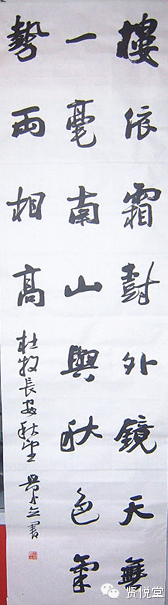 樓依霜樹外鏡天無
一毫南山與秋色氣
勢兩相高
杜牧長安秋望 書
贤悦堂